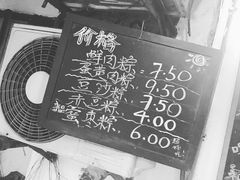 价格
鲜肉粽 = 7.50
蛋黄肉粽 = 9.50
豆沙粽、 7.50
赤豆粽、 4.00
蜜枣粽、、 6.00